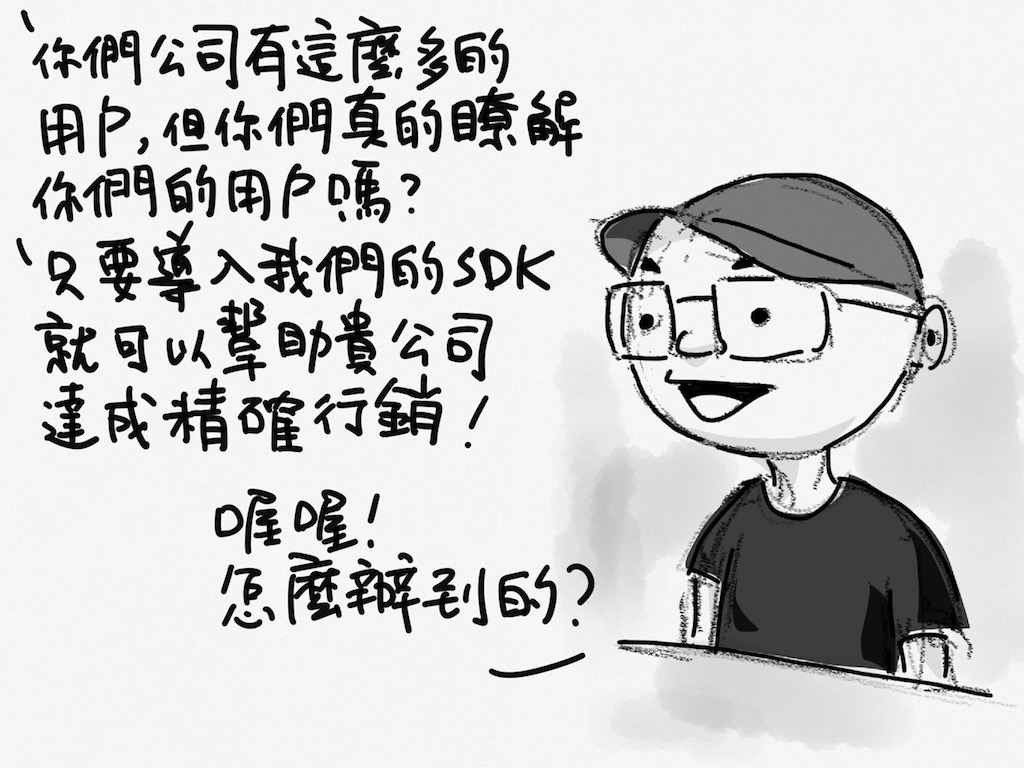 你們公司有這麼多的
用戶,但你們真的瞭解
你們的用戶嗎?
只要導入我們的SDK
就可以幫助貴公司
達成精確行銷!
喔喔!
怎麼辦到的?